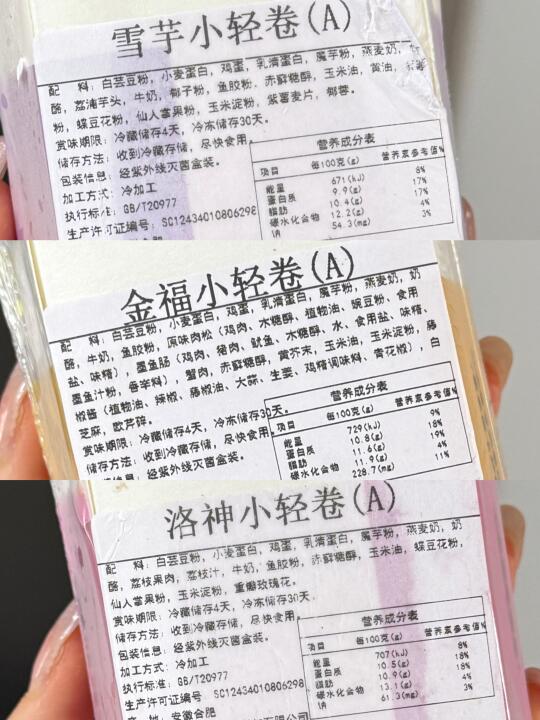 雪芋小轻卷(A)
配 料：白芸豆粉，小麦蛋白，鸡蛋，乳清蛋白，魔芋粉，燕麦奶，
酪，荔浦芋头，牛奶，椰子粉，鱼胶粉，赤藓糖醇，玉米油，黄油，
粉，蝶豆花粉，仙人掌果粉，玉米淀粉，紫薯麦片，椰蓉。
赏味期限：冷藏储存4天，冷冻储存30天。
储存方法：收到冷藏存储，尽快食用。
包装信息：经紫外线灭菌盒装。
加工方式：冷加工
执行标准：GB/T20977
生产许可证编号：SC12434010806298
营养成分表
项目 每100克(g) 营养素参考值%
能量 671(kJ) 8%
蛋白质 9.9(g) 17%
脂肪 10.4(g) 17%
碳水化合物 12.2(g) 4%
钠 54.3(mg) 3%
金福小轻卷(A)
配 料：白芸豆粉，小麦蛋白，鸡蛋，乳清蛋白，魔芋粉，燕麦奶，奶
酪，牛奶，鱼胶粉，原味肉松（鸡肉、水糖醇、植物油、豌豆粉、食用
盐、味精），墨鱼肠（鸡肉，猪肉，鱿鱼、水糖醇、水、食用盐、味精、
墨鱼汁粉，香辛料），蟹肉，赤藓糖醇，黄芥末，玉米油，玉米淀粉，藤
椒酱（植物油、辣椒、藤椒油、大蒜、生姜、鸡精调味料、青花椒），白
芝麻，欧芹碎。
赏味期限：冷藏储存4天，冷冻储存30天。
储存方法：收到冷藏存储，尽快食用。
经紫外线灭菌盒装。
营养成分表
项目 每100克(g) 营养素参考值%
能量 729(kJ) 9%
蛋白质 10.8(g) 18%
脂肪 11.6(g) 19%
碳水化合物 11.9(g) 4%
228.7(mg) 11%
洛神小轻卷(A)
配 料：白芸豆粉，小麦蛋白，鸡蛋，乳清蛋白，魔芋粉，燕麦奶，奶
酪，荔枝果肉，荔枝汁，牛奶，鱼胶粉，赤藓糖醇，玉米油，蝶豆花粉，
仙人掌果粉，玉米淀粉，重瓣玫瑰花。
赏味期限：冷藏储存4天，冷冻储存30天。
储存方法：收到冷藏存储，尽快食用。
包装信息：经紫外线灭菌盒装。
加工方式：冷加工
执行标准：GB/T20977
生产许可证编号：SC12434010806298
产 地：安徽合肥
营养成分表
项目 每100克(g) 营养素参考值%
能量 707(kJ) 8%
蛋白质 10.5(g) 18%
脂肪 10.9(g) 18%
碳水化合物 13.1(g) 4%
钠 61.3(mg) 3%